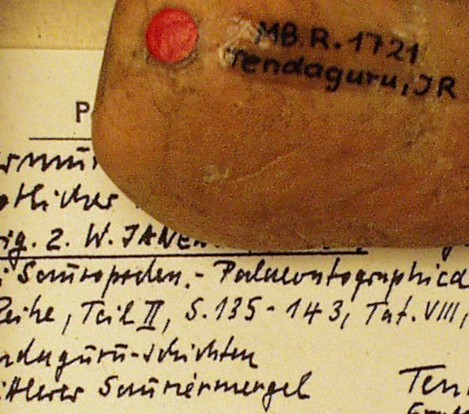 MB.R.1721
Tendaguru, JR
P
ig. 2. W. JANEN
Sauropoden.- Palaeontographica
Reihe, Teil II, S.135-143, Taf. VIII,
ndaguru-Schichten
ittlerer Sauriermergel
Ten